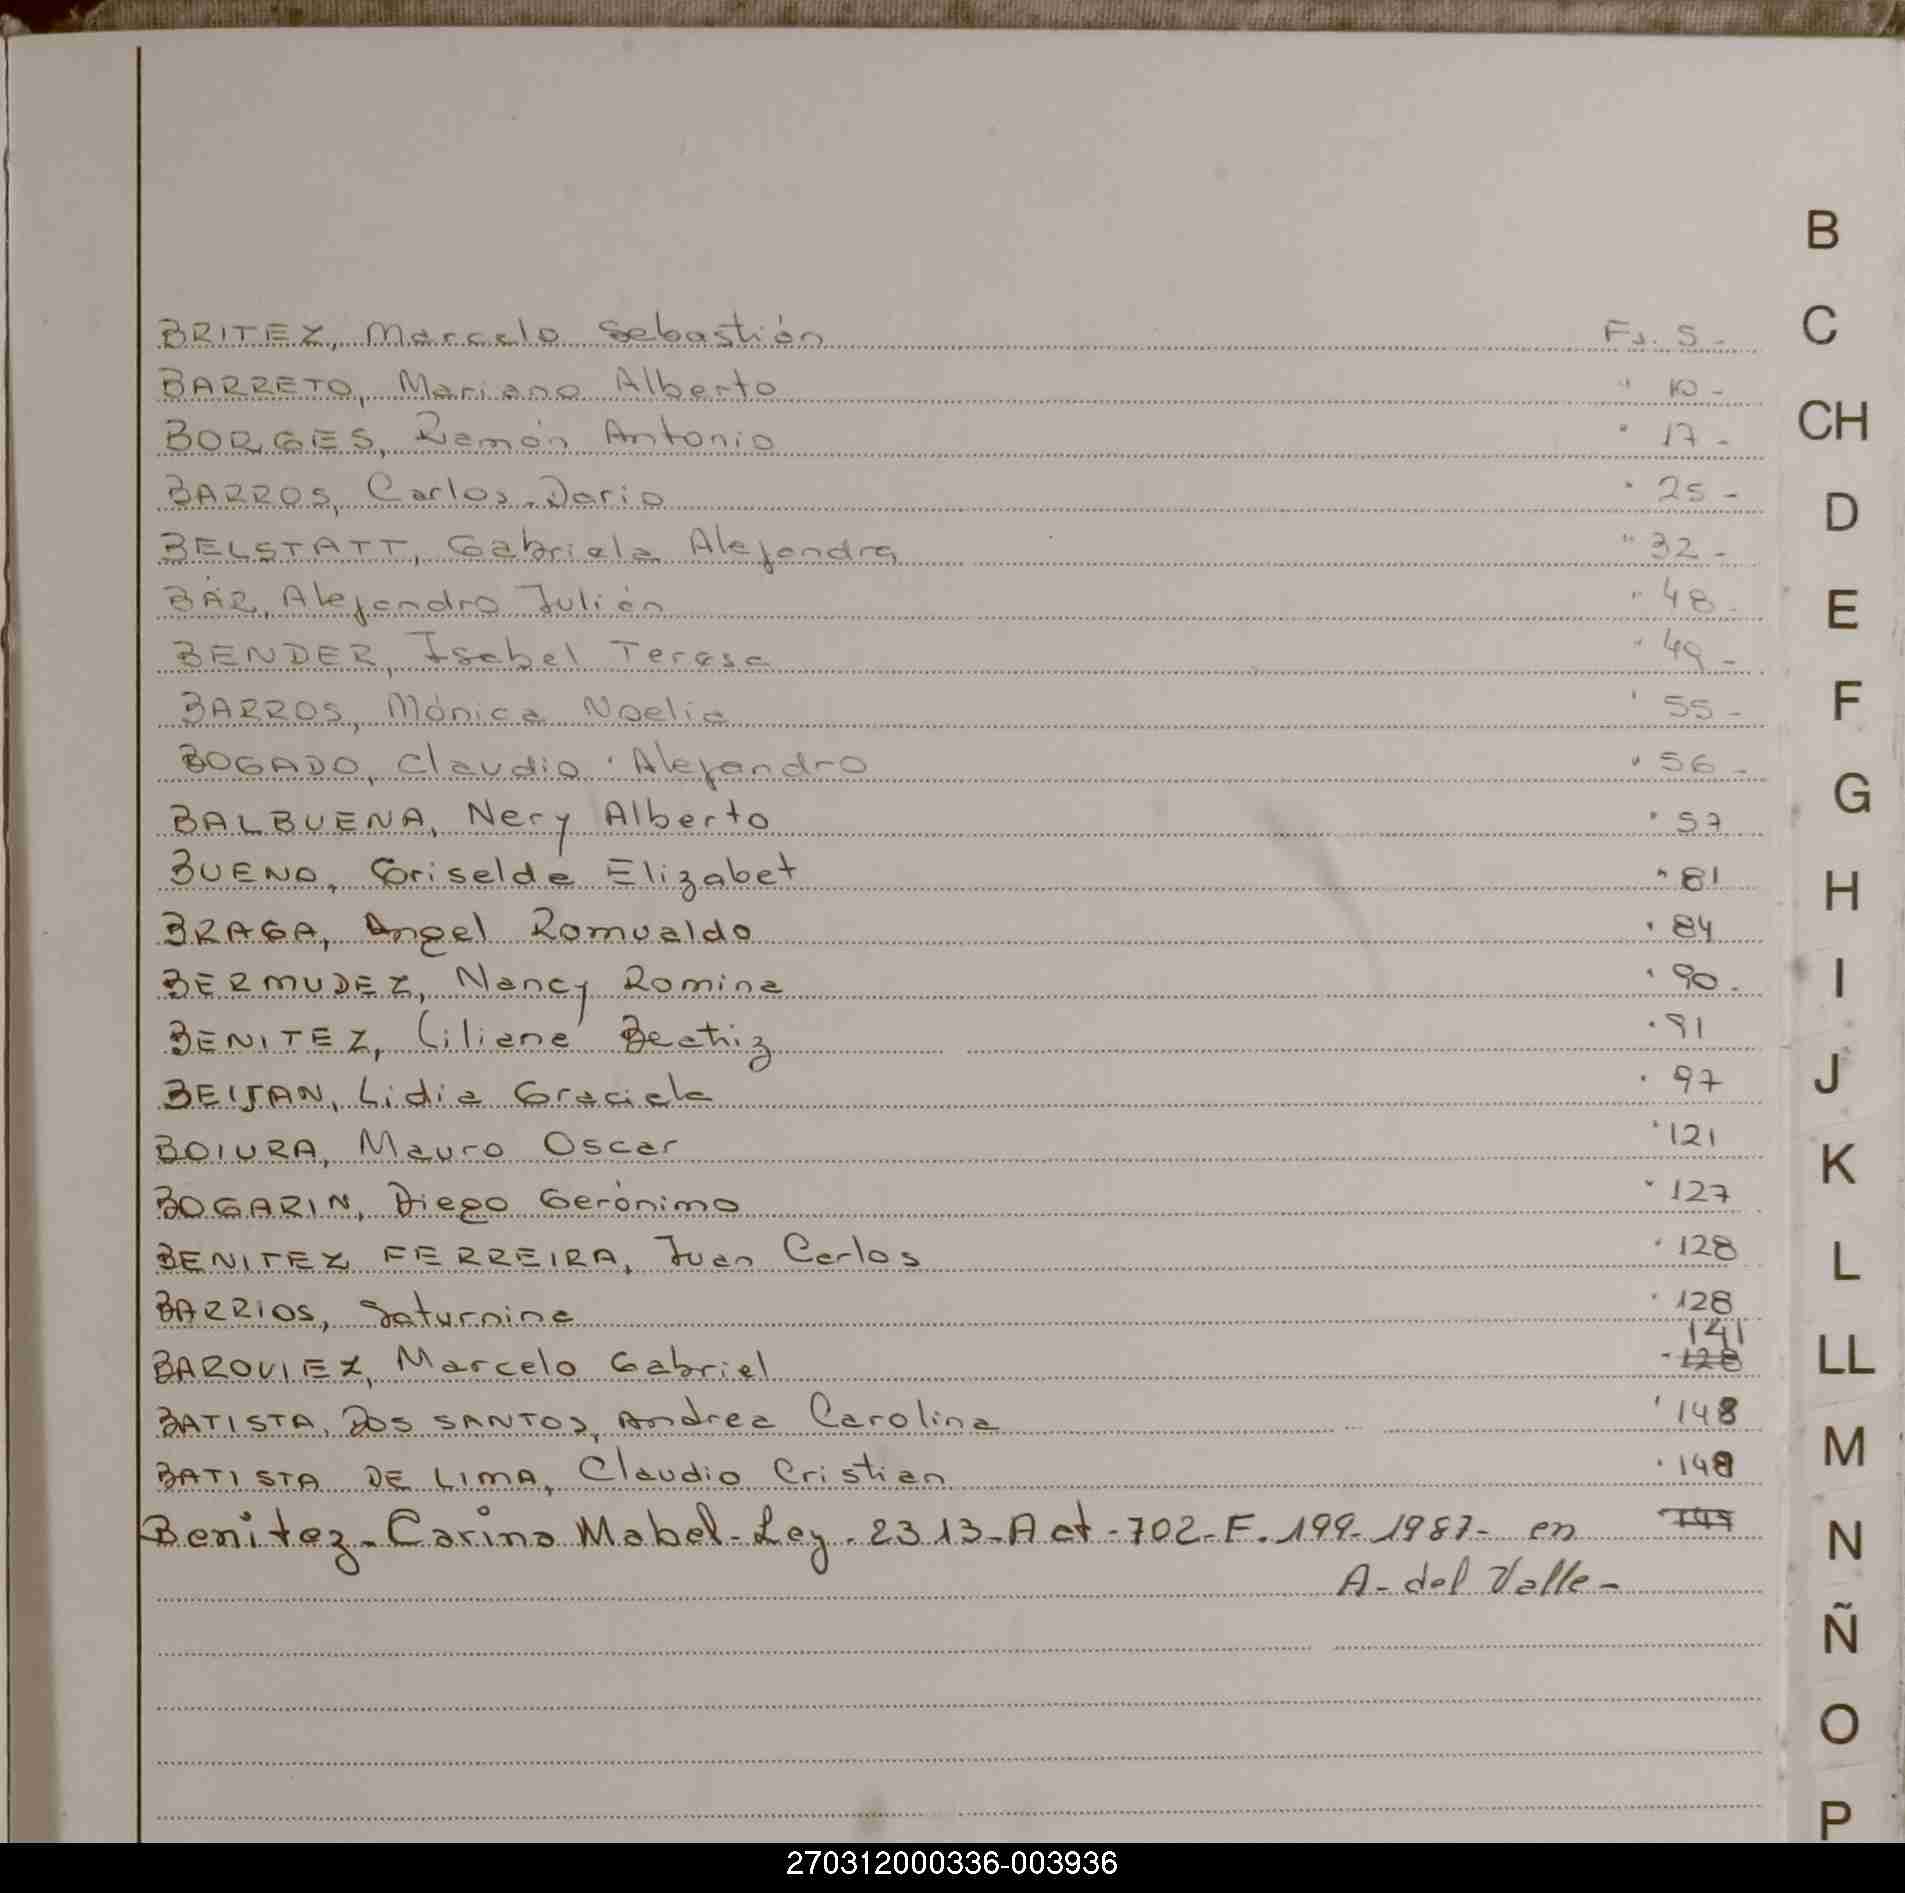 BRITEZ, Marcelo Sebastián Fs. 5 -
BARRETO, Mariano Alberto " 10 -
BORGES, Ramón Antonio " 17 -
BARROS, Carlos Dario " 25 -
BELSTATT, Gabriela Alejandra " 32 -
BÄR, Alejandro Julián " 48 -
BENDER, Isabel Teresa " 49 -
BARROS, Mónica Noelia " 55 -
BOGADO, Claudio Alejandro " 56 -
BALBUENA, Nery Alberto " 57
BUENO, Griselda Elizabet " 81
BRAGA, Angel Romualdo " 84
BERMUDEZ, Nancy Romina " 90 -
BENITEZ, Liliana Beatriz " 91
BEIJAN, Lidia Graciela " 97
BOIURA, Mauro Oscar " 121
BOGARIN, Diego Gerónimo " 127
BENITEZ FERREIRA, Juan Carlos " 128
BARRIOS, Saturnina " 128
141
BAROVIEZ, Marcelo Gabriel " 128
BATISTA, DOS SANTOS, Andrea Carolina " 148
BATISTA DE LIMA, Claudio Cristian " 149
Benitez - Carina Mabel - Ley . 2313 - Act - 702 - F. 199 - 1987 - en
A - del Valle -
B
C
CH
D
E
F
G
H
I
J
K
L
LL
M
N
Ñ
O
P
270312000336-003936